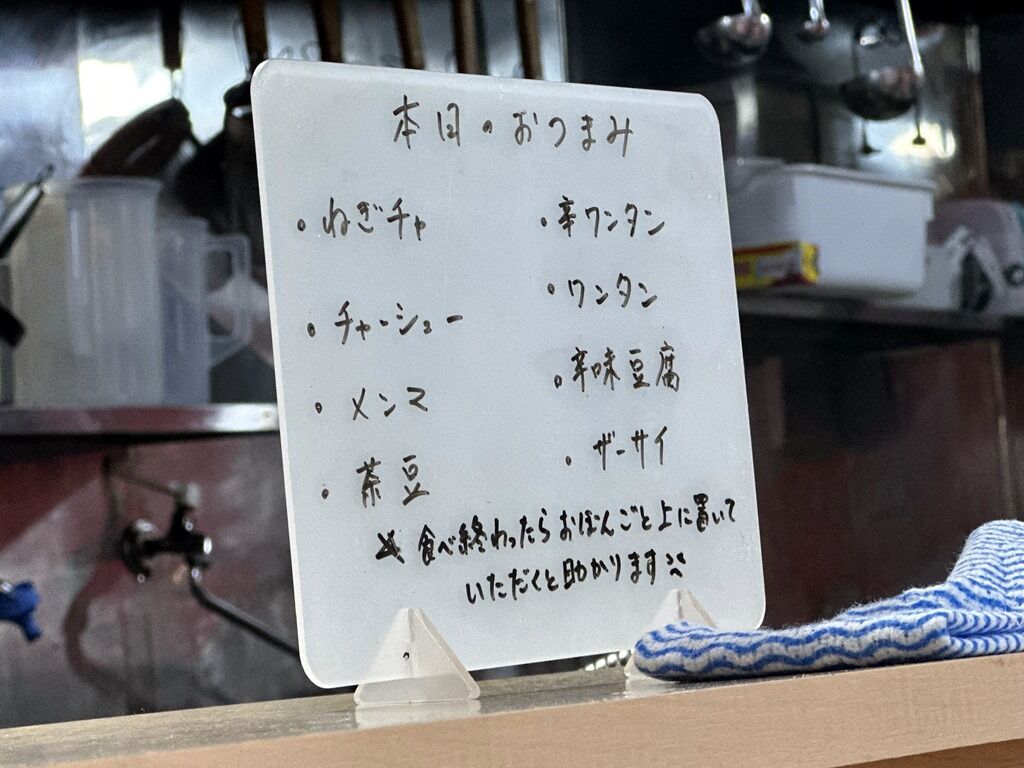 本日・おつまみ
・ねぎチャ
・チャーシュー
・メンマ
・茶豆
・辛ワンタン
・ワンタン
・辛味豆腐
・ザーサイ
※食べ終わったらおぼんごと上に置いて
いただくと助かります